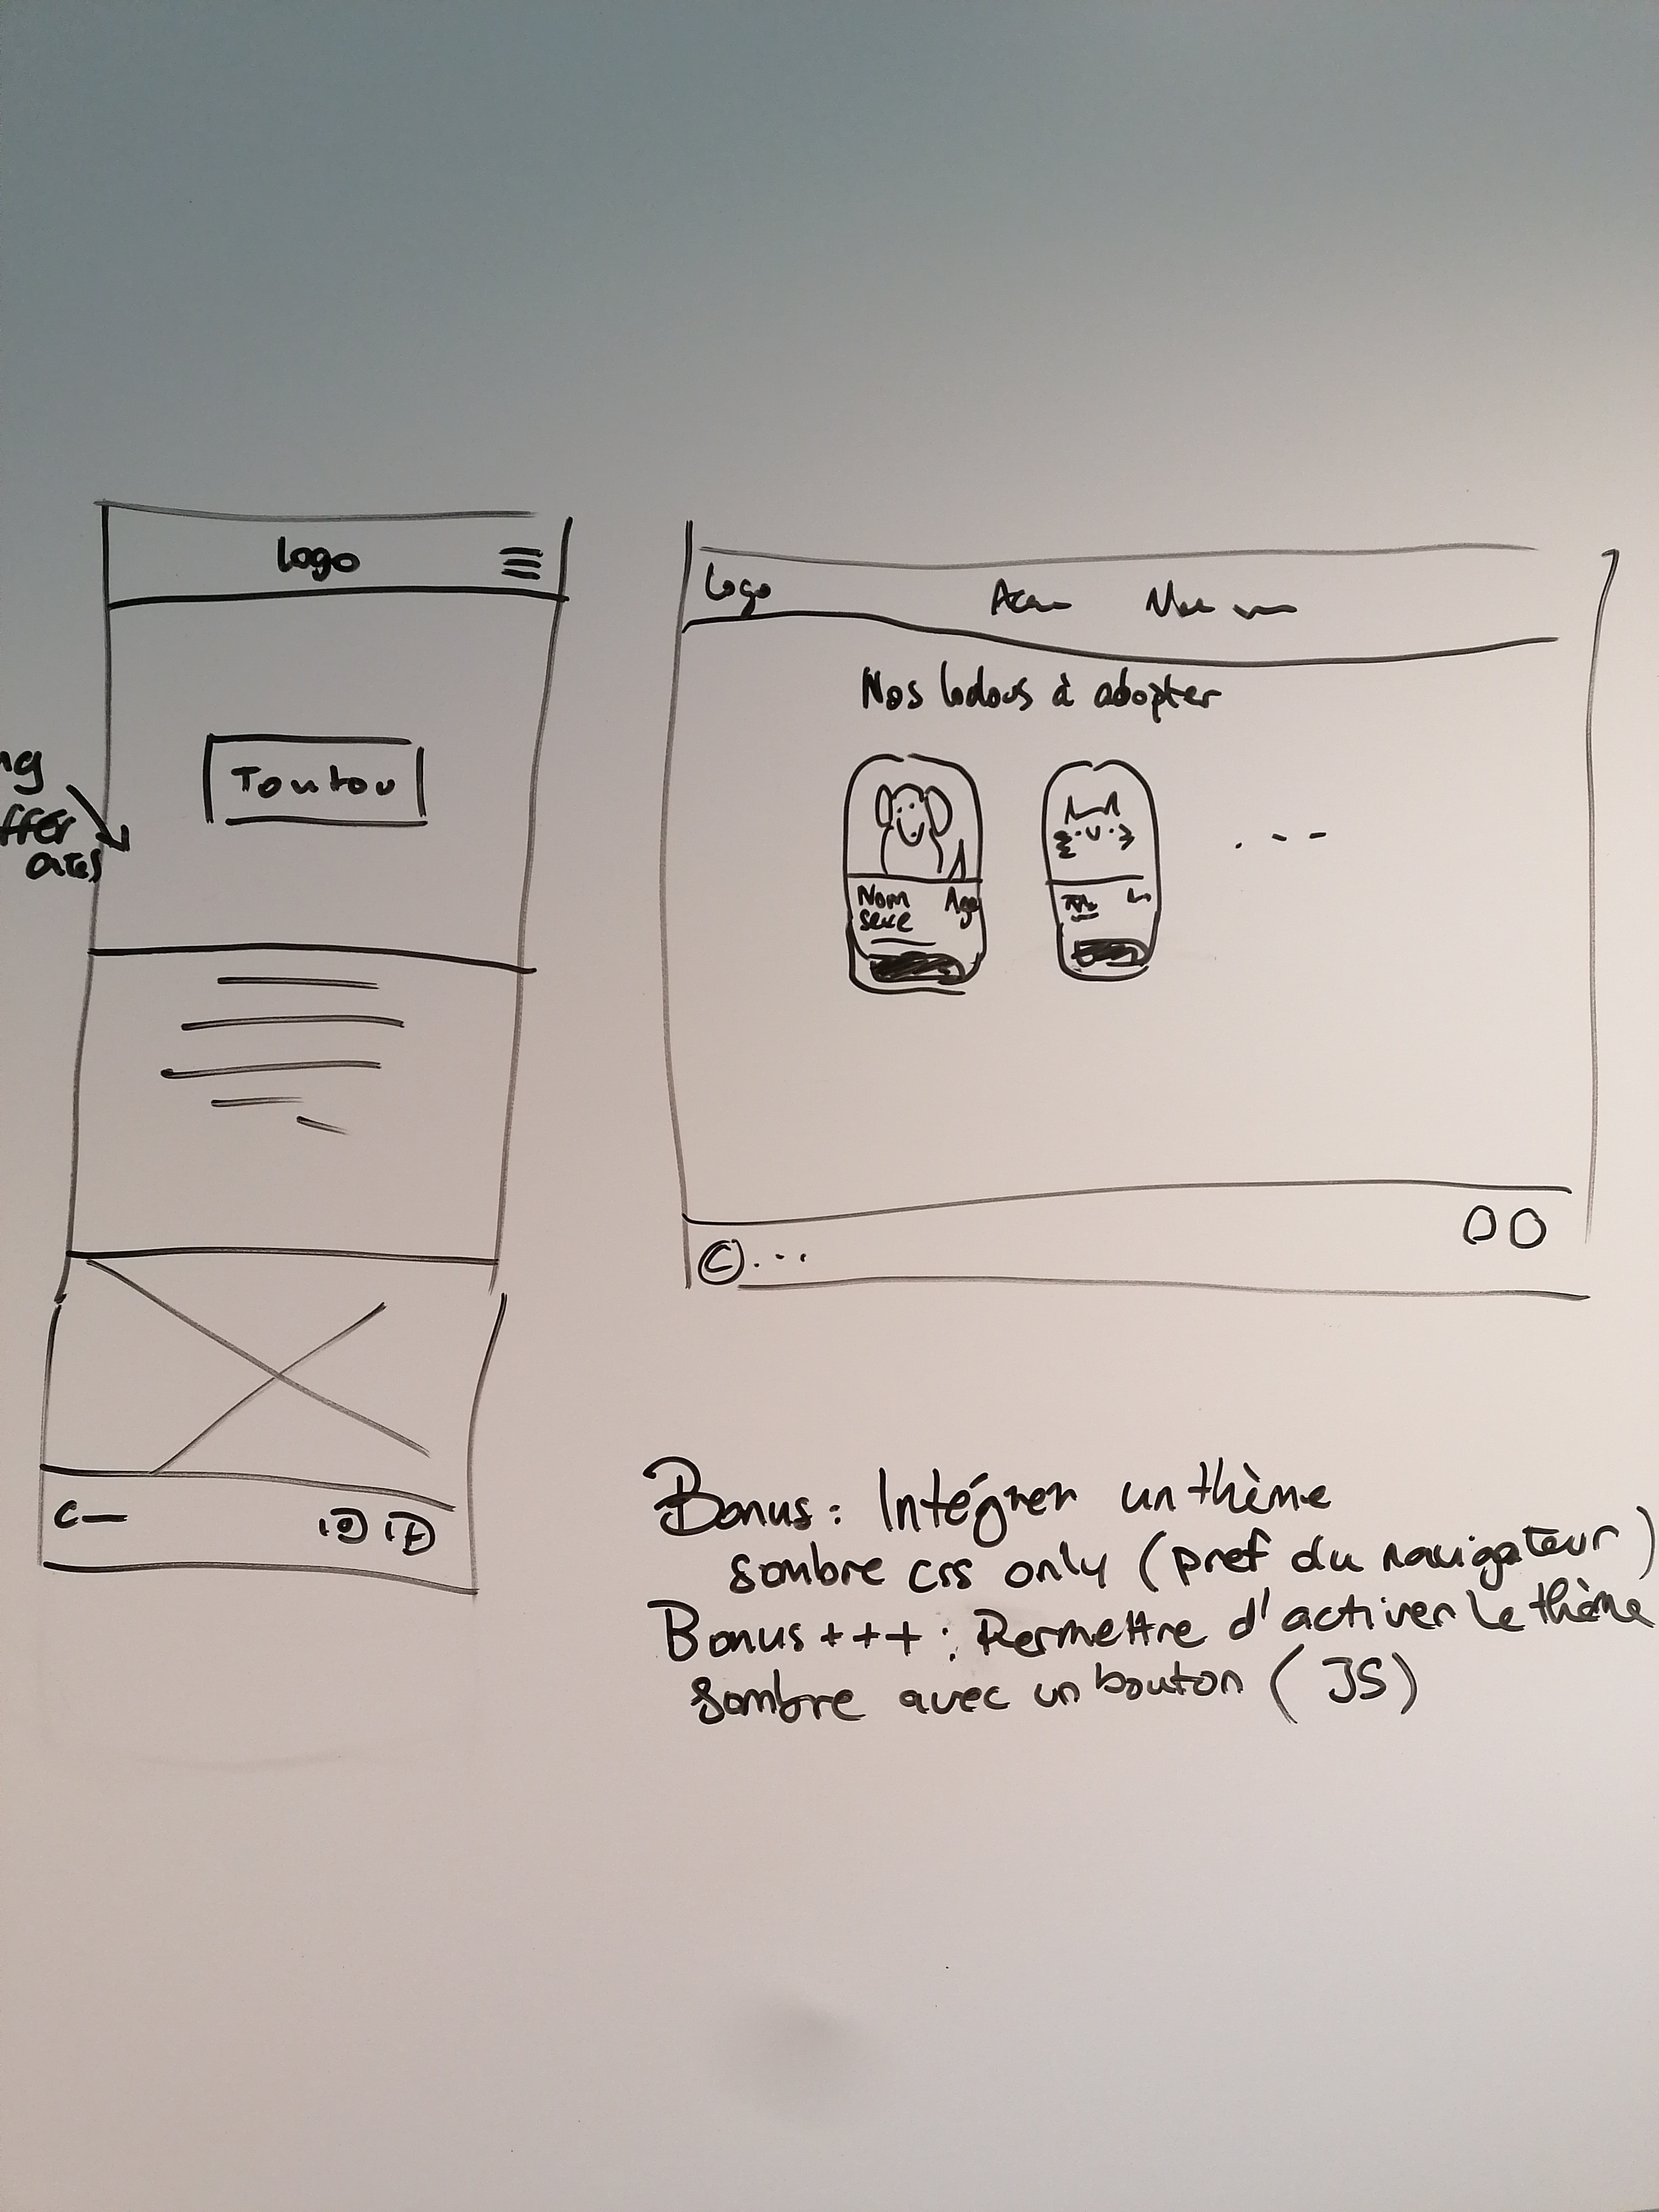 logo
Toutou
Logo
Nos lodous à adopter
Nom Age
sexe
©...
Bonus : Intégrer un thème
sombre css only (pref du navigateur)
Bonus +++ : Permettre d'activer le thème
sombre avec un bouton (JS)